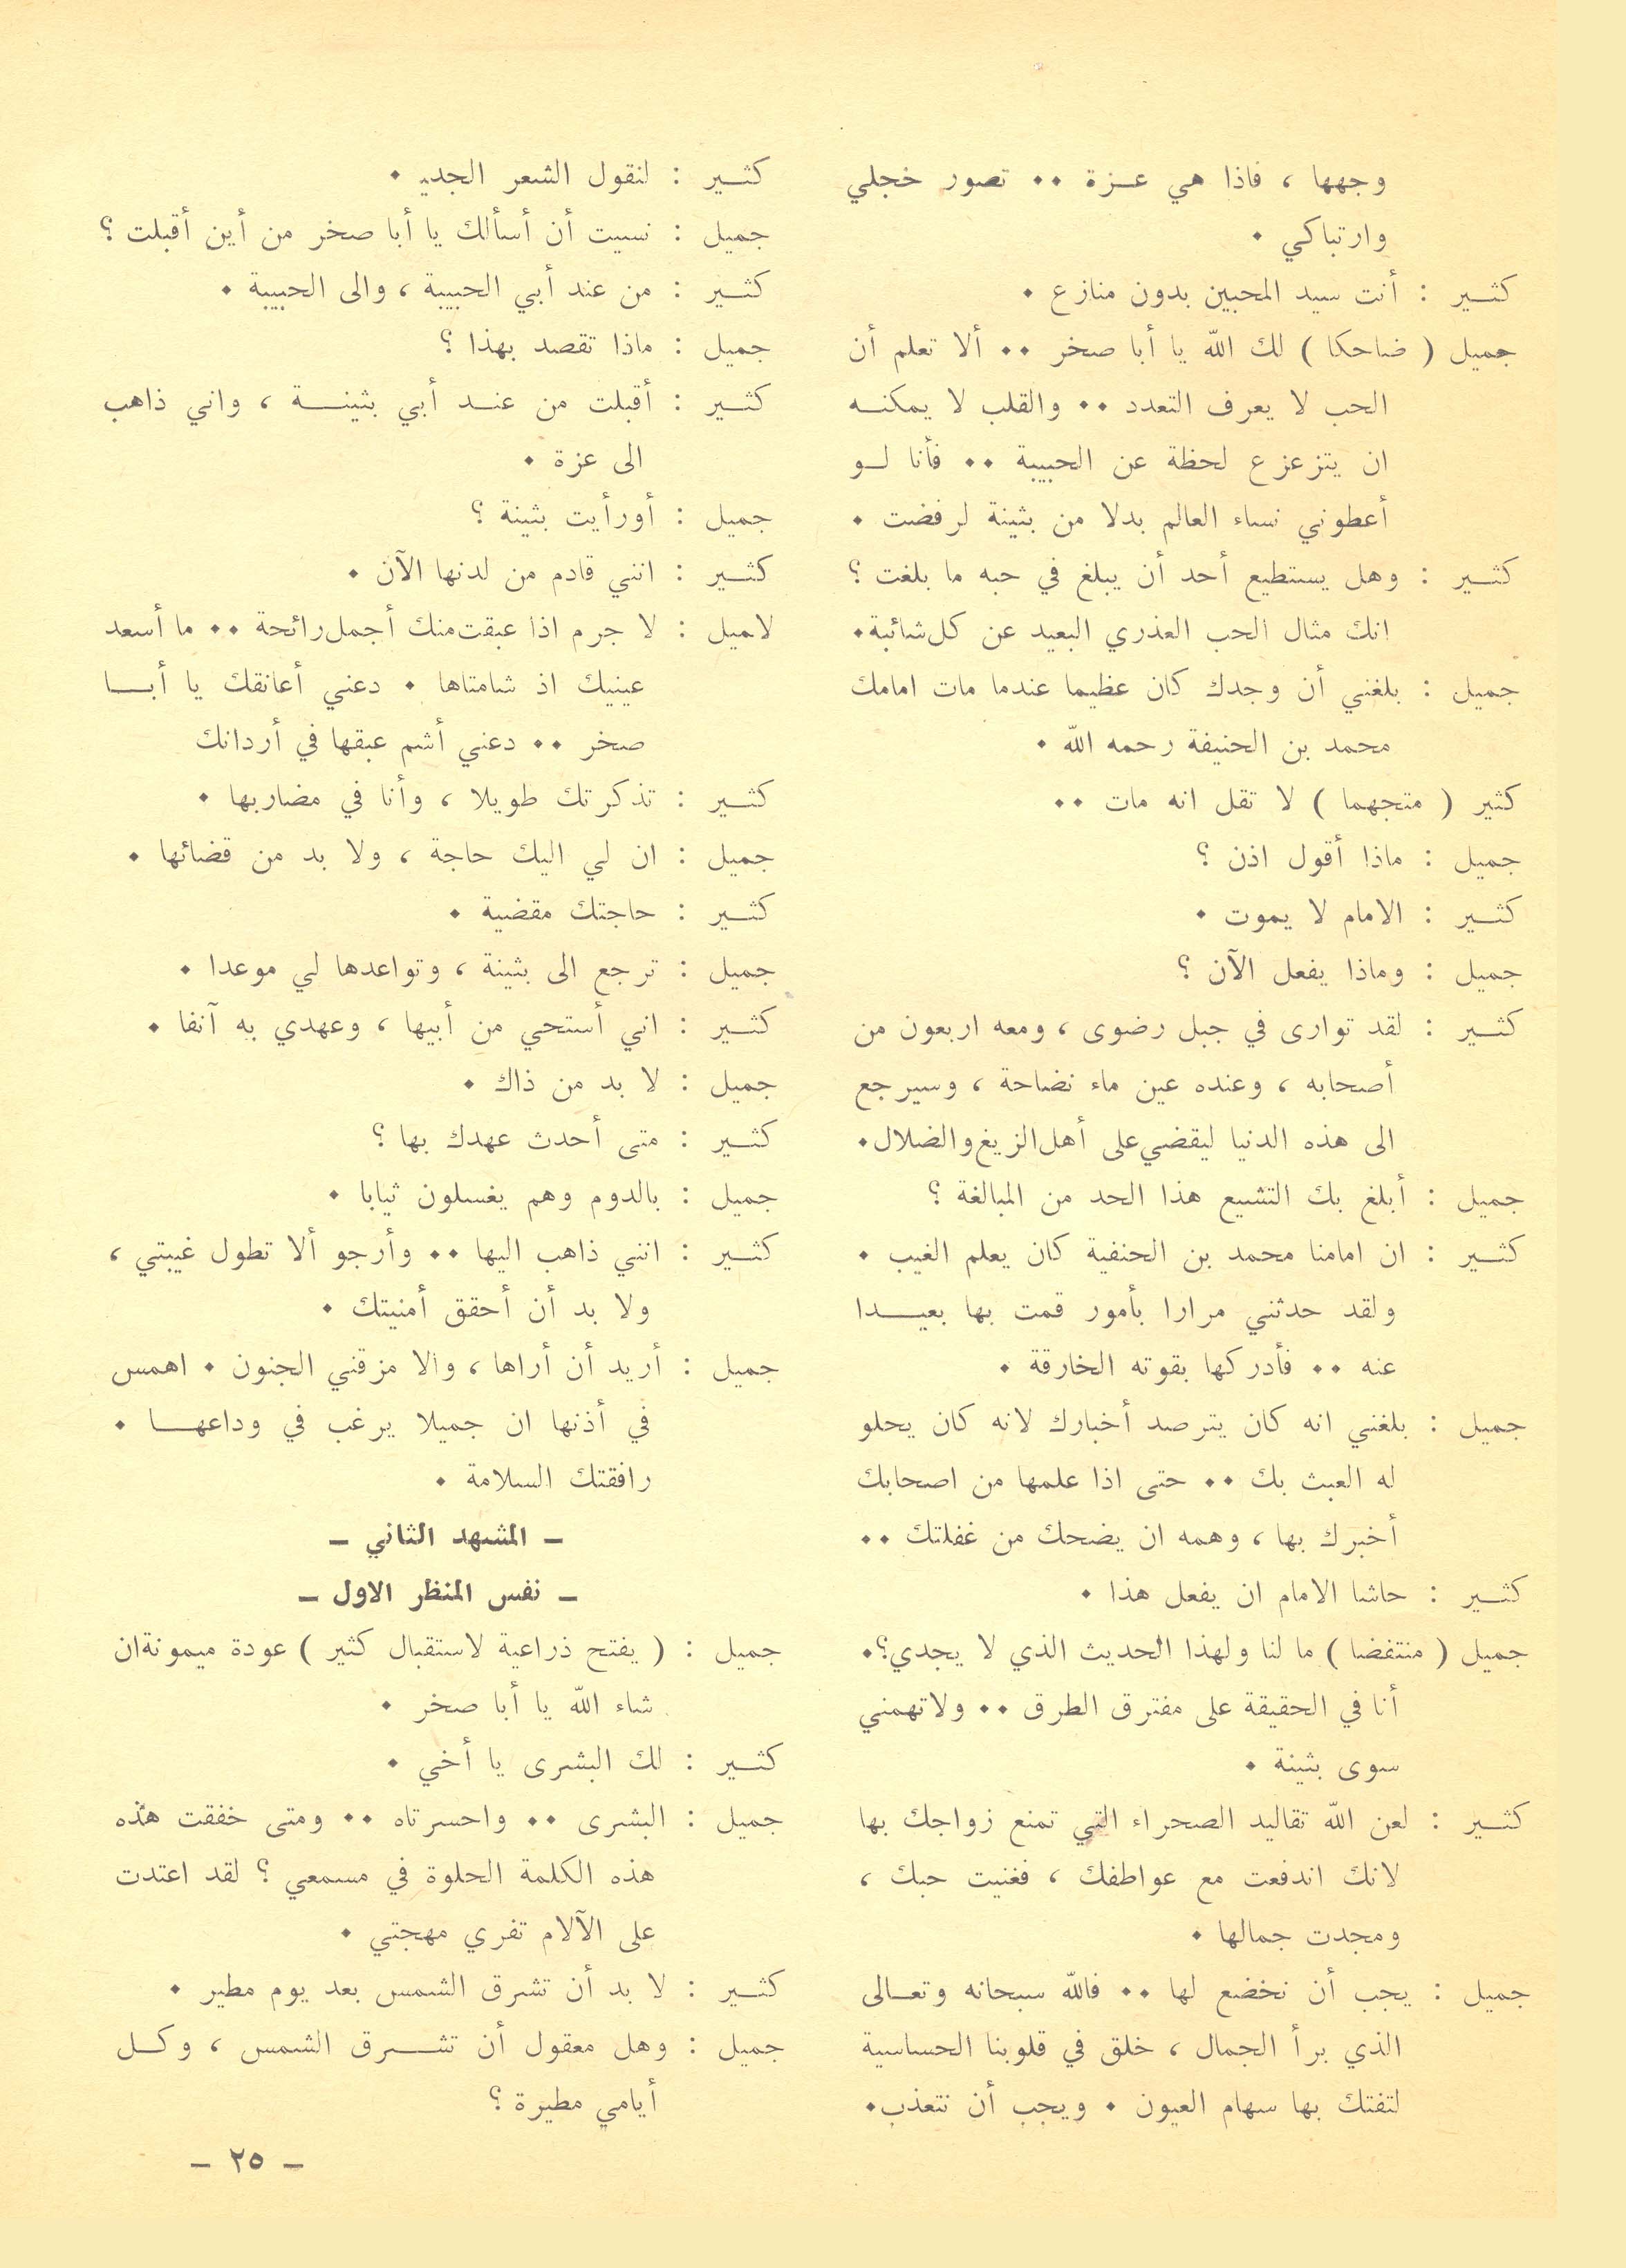 وجهها ، فاذا هي عـزة ٠٠ تصور خجلي
وارتباكي ٠
كثـير : أنت سيد المحبين بدون منازع ٠
جميل ( ضاحكا ) لك الله يا أبا صخر ٠٠ ألا تعلم أن
الحب لا يعرف التعدد ٠٠ والقلب لا يمكنـه
ان يتزعزع لحظة عن الحبيبة ٠٠ فأنا لـو
أعطوني نساء العالم بدلا من بثينة لرفضت ٠
كثـير : وهل يستطيع أحد أن يبلغ في حبه ما بلغت ؟
انك مثال الحب العذري البعيد عن كل شائبة٠
جميل : بلغني أن وجدك كان عظيما عندما مات امامك
محمد بن الحنيفة رحمه الله ٠
كثير ( متجهما ) لا تقل انه مات ٠٠
جميل : ماذا أقول اذن ؟
كثـير : الامام لا يموت ٠
جميل : وماذا يفعل الآن ؟
كثـير : لقد توارى في جبل رضوى ، ومعه اربعون من
أصحابه ، وعنده عين ماء نضاحة ، وسيرجع
الى هذه الدنيا ليقضي على أهل الزيغ والضلال٠
جميل : أبلغ بك التشيع هذا الحد من المبالغة ؟
كثـير : ان امامنا محمد بن الحنفية كان يعلم الغيب ٠
ولقد حدثني مرارا بأمور قمت بها بعيـدا
عنه ٠٠ فأدركها بقوته الخارقة ٠
جميل : بلغني انه كان يترصد أخبارك لانه كان يحلو
له العبث بك ٠٠ حتى اذا علمها من اصحابك
أخبرك بها ، وهمه ان يضحك من غفلتك ٠٠
كثـير : حاشا الامام ان يفعل هذا ٠
جميل ( منتفضا ) ما لنا ولهذا الحديث الذي لا يجدي؟٠
أنا في الحقيقة على مفترق الطرق ٠٠ ولا تهمني
سوى بثينة ٠
كثـير : لعن الله تقاليد الصحراء التي تمنع زواجك بها
لانك اندفعت مع عواطفك ، فغنيت حبك ،
ومجدت جمالها ٠
جميل : يجب أن نخضع لها ٠٠ فالله سبحانه وتعـالى
الذي برأ الجمال ، خلق في قلوبنا الحساسية
لتفتك بها سهام العيون ٠ ويجب أن نتعذب٠
كثـير : لنقول الشعر الجديد ٠
جميل : نسيت أن أسألك يا أبا صخر من أين أقبلت ؟
كثـير : من عند أبي الحبيبة ، والى الحبيبة ٠
جميل : ماذا تقصد بهذا ؟
كثـير : أقبلت من عنـد أبي بثينـة ، واني ذاهب
الى عزة ٠
جميل : أورأيت بثينة ؟
كثـير : انني قادم من لدنها الآن ٠
لاميل : لا جرم اذا عبقت منك أجمل رائحة ٠٠ ما أسعد
عينيك اذ شامتاها ٠ دعني أعانقك يا أبـا
صخر ٠٠ دعني أشم عبقها في أردانك
كثـير : تذكرتك طويلا ، وأنا في مضاربها ٠
جميل : ان لي اليك حاجة ، ولا بد من قضائها ٠
كثـير : حاجتك مقضية ٠
جميل : ترجع الى بثينة ، وتواعدها لي موعدا ٠
كثـير : اني أستحي من أبيها ، وعهدي به آنفا ٠
جميل : لا بد من ذاك ٠
كثـير : متى أحدث عهدك بها ؟
جميل : بالدوم وهم يغسلون ثيابا ٠
كثـير : انني ذاهب اليها ٠٠ وأرجو ألا تطول غيبتي ،
ولا بد أن أحقق أمنيتك ٠
جميل : أريد أن أراها ، والا مزقني الجنون ٠ اهمس
في أذنها ان جميلا يرغب في وداعهـا ٠
رافقتك السلامة ٠
– المشهد الثاني –
– نفس المنظر الاول –
جميل : ( يفتح ذراعية لاستقبال كثير ) عودة ميمونة ان
شاء الله يا أبا صخر ٠
كثـير : لك البشرى يا أخي ٠
جميل : البشرى ٠٠ واحسرتاه ٠٠ ومتى خفقت هذه
هذه الكلمة الحلوة في مسمعي ؟ لقد اعتدت
على الآلام تفري مهجتي ٠
كثـير : لا بد أن تشرق الشمس بعد يوم مطير ٠
جميل : وهل معقول أن تشـرق الشمس ، وكـل
أيامي مطيرة ؟
– ٢٥ –